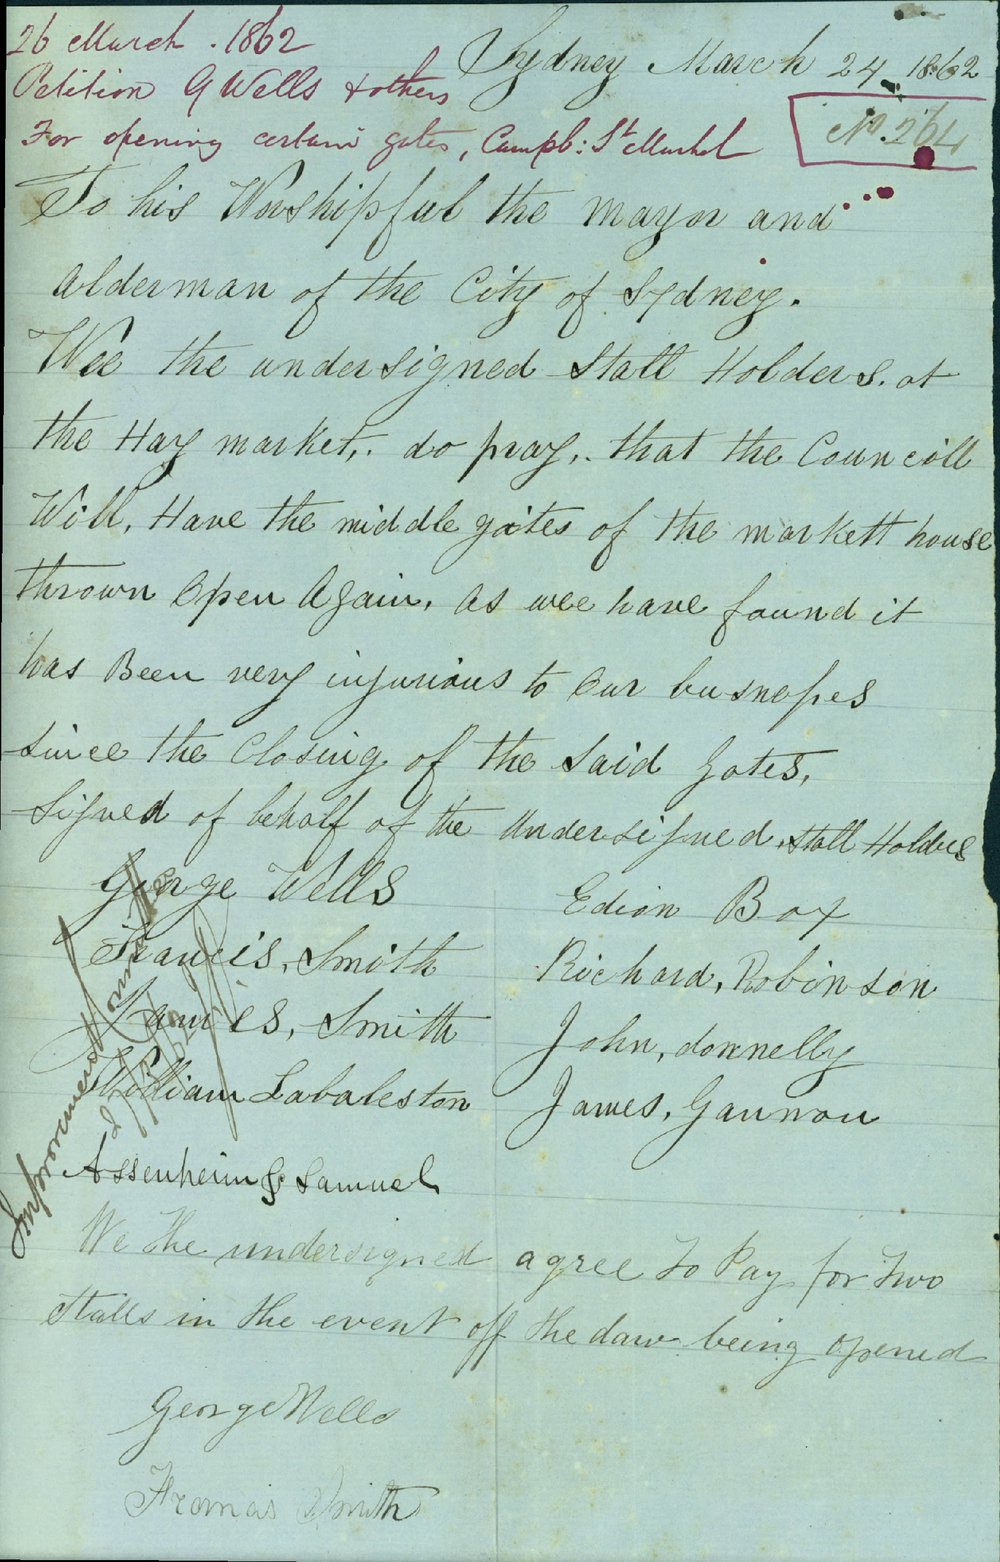 26 March . 1862
Petition G Wells & others
For opening certain gates, Campb: St Market
Sydney March 24 1862
No 264
To his Worshipful the Mayor and
alderman of the City of Sydney.
Wee the undersigned Stall Holders. at
the Hay market, do pray, that the Councill
Will, Have the middle gaites of the markett house
thrown Open Again, as wee have found it
has Been very injurious to Our busnesses
since the Closing of the Said Gates,
Signed of behalf of the Undersigned, Stall Holders
George Wells
Francis, Smith
James, Smith
William Labaleston
Assenheim & Samuel
Edion Box
Richard, Robinson
John, donnelly
James, Gannon
Improvement Committee
We The undersigned agree to Pay for Two
Stalls in the event off the daw being opened
George Wells
Framcis Smith